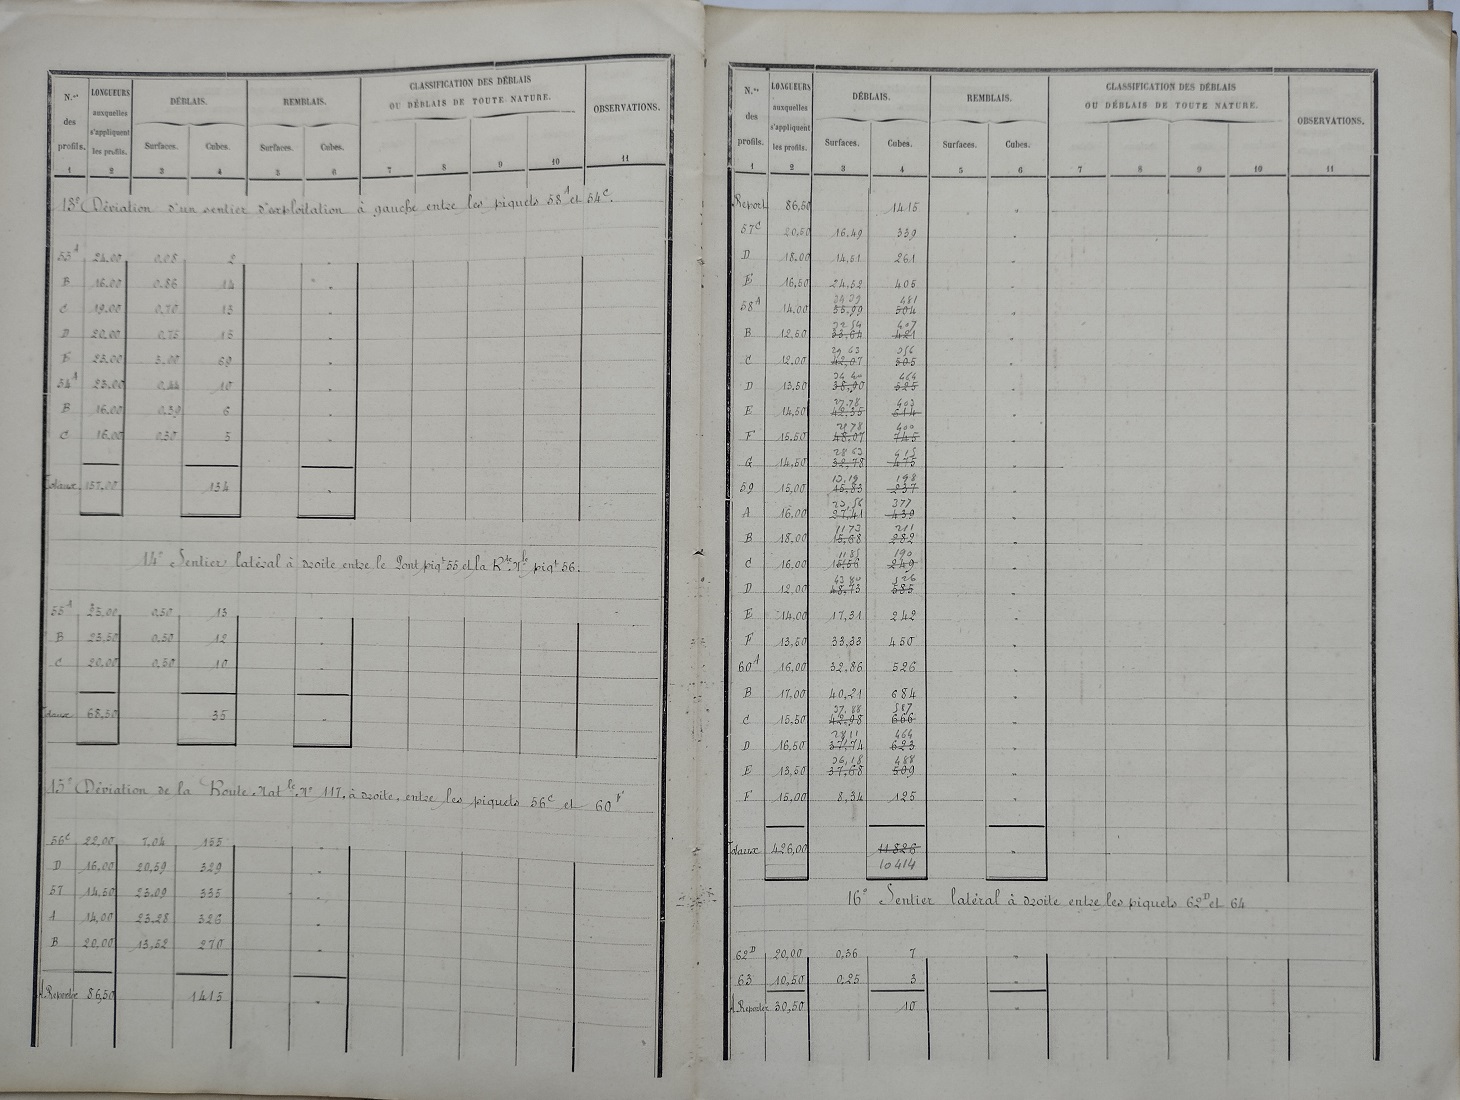 N.os des profils. | LONGUEURS auxquelles s'appliquent les profils. | DÉBLAIS. Surfaces. | Cubes. | REMBLAIS. Surfaces. | Cubes. | CLASSIFICATION DES DÉBLAIS OU DÉBLAIS DE TOUTE NATURE. | OBSERVATIONS.
1 2 3 4 5 6 7 8 9 10 11
13e Déviation d'un sentier d'exploitation à gauche entre les piquets 53A et 54C.
53A 24.00 0.08 2
B 16.00 0.86 14
C 19.00 0.70 13
D 20.00 0.75 15
E 23.00 3.00 69
54A 23.00 0.44 10
B 16.00 0.39 6
C 16.00 0.30 5
Totaux 157.00 134
14e Sentier latéral à droite entre le Pont piqt 55 et la Rte Nle piqt 56.
55A 25.00 0.50 13
B 23.50 0.50 12
C 20.00 0.50 10
Totaux 68.50 35
15e Déviation de la Route Natle No 117, à droite, entre les piquets 56C et 60F
56C 22.00 7.04 155
D 16.00 20.59 329
57 14.50 23.09 335
A 14.00 23.28 326
B 20.00 13.52 270
A Reporter 86.50 1415
N.os des profils. | LONGUEURS auxquelles s'appliquent les profils. | DÉBLAIS. Surfaces. | Cubes. | REMBLAIS. Surfaces. | Cubes. | CLASSIFICATION DES DÉBLAIS OU DÉBLAIS DE TOUTE NATURE. | OBSERVATIONS.
1 2 3 4 5 6 7 8 9 10 11
Report 86.50 1415
57C 20.50 16.49 339
D 18.00 14.51 261
E 16.50 24.52 405
481
58A 14.00 504
32 54 407
B 12.50 33.64 421
29 63 356
C 12.00 42.07 505
34 40 464
D 13.50 38.90 525
27.78 403
E 14.50 42.35 614
400
F 15.50 48.07 745
28 63 415
G 14.50 32.78 475
13.19 198
59 15.00 15.83 237
23,56 377
A 16.00 27.41 439
11 73 211
B 18.00 15.68 282
11 85 190
C 16.00 15.56 249
43 80 526
D 12.00 48.73 585
E 14.00 17.31 242
F 13.50 33.33 450
60A 16.00 32.86 526
B 17.00 40.21 684
37.88 587
C 15.50 42.98 666
28 11 464
D 16.50 37.74 623
36,18 488
E 13.50 37.68 509
F 15.00 8.34 125
Totaux 426,00 11826
10414
16e Sentier latéral à droite entre les piquets 62D et 64
62D 20.00 0.36 7
63 10.50 0.25 3
A Reporter 30,50 10